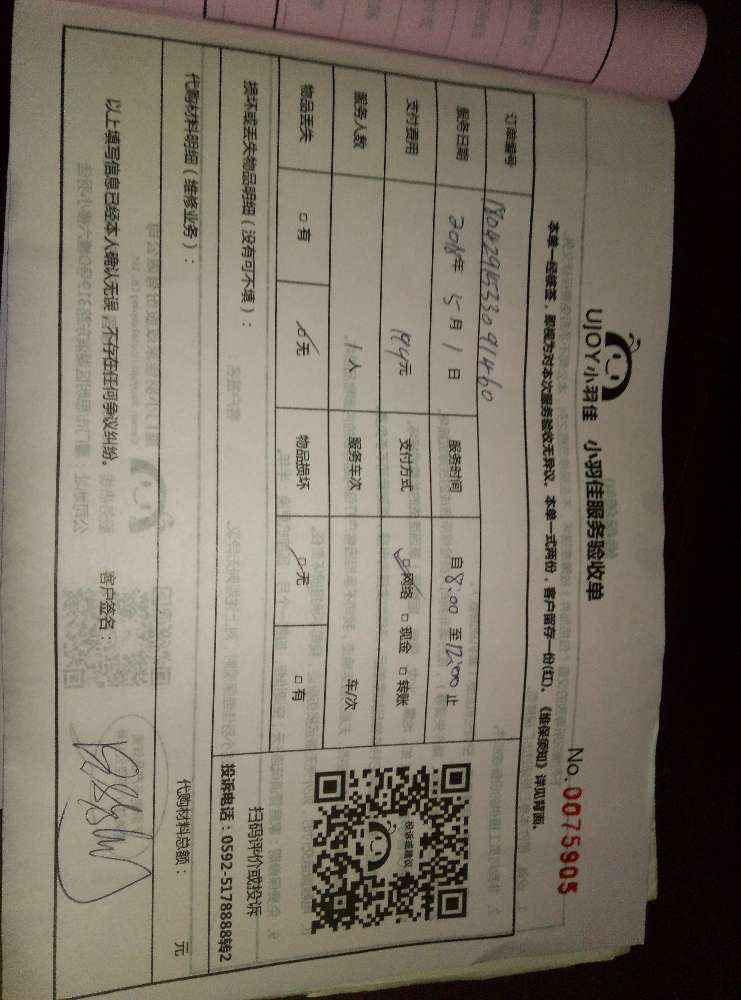 UJOY小羽佳 小羽佳服务验收单
No. 0075905
本单一经签签，即视为对本次服务验收无异议。本单一式两份，客户留存一份(红)。《维保须知》详见背面。
订单编号
服务日期 2018年 5月 1日 服务时间 自 8:00 至 12:00 止
支付费用 199元 支付方式 □网络 □现金 □转账
服务人数 1人 服务车次 车/次
物品丢失 □有 □无 物品损坏 □无 □有
投诉或建议
扫码评价或投诉
投诉电话：0592-5178888转2
损坏或丢失物品明细（没有可不填）：
代购材料明细（维修业务）： 代购材料总额： 元
以上填写信息已经本人确认无误，不存在任何争议纠纷。 客户签名：